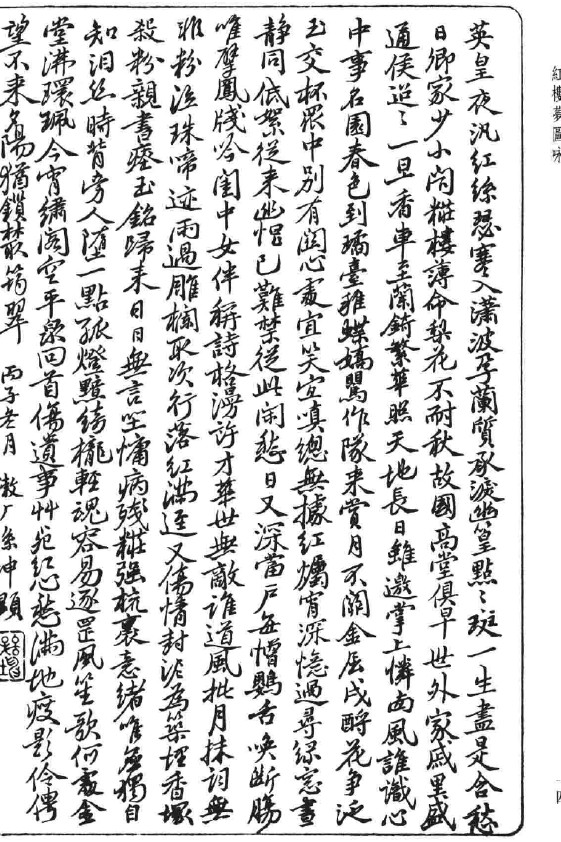 紅樓夢圖詠
英皇夜汎紅絲瑟寒入瀟波孕蘭質承淚幽篁點〻斑一生盡是含愁
日卿家少小閟糚樓薄命梨花不耐秋故國高堂俱早世外家戚里盛
通侯迢〻一旦香車至蘭錡繁華照天地長日雖邀掌上憐西風誰識心
中事名園春色到璚臺雅蝶嬌鸎作隊来賞月不關金屈戌酹花争泛
玉交杯眾中別有關心處宜笑宜嗔總無據紅爥宵深憶過尋綠窓晝
静同低絮從来幽悒已難禁從此閒愁日又深當戶每憎鸚舌喚斷腸
唯擘鳳牋吟閨中女伴稱詩格漫許才華世無敵誰道風批月抹詞無
非粉泣珠啼迹雨過雕欄取次行落紅滿逕又傷情封泥為築埋香塚
殺粉親書瘞玉銘歸来日日無言坐慵病殘糚强梳裹意緒唯應獨自
知淚絲時背旁人墮一點孤燈黯綺櫳輕魂容易逐罡風笙歌何處金
堂沸環珮今宵繡閣空平泉回首傷遺事艸宛紅愁滿地瘦影伶俜
望不来夕陽猶鎖筠翠 丙子 月 坤題